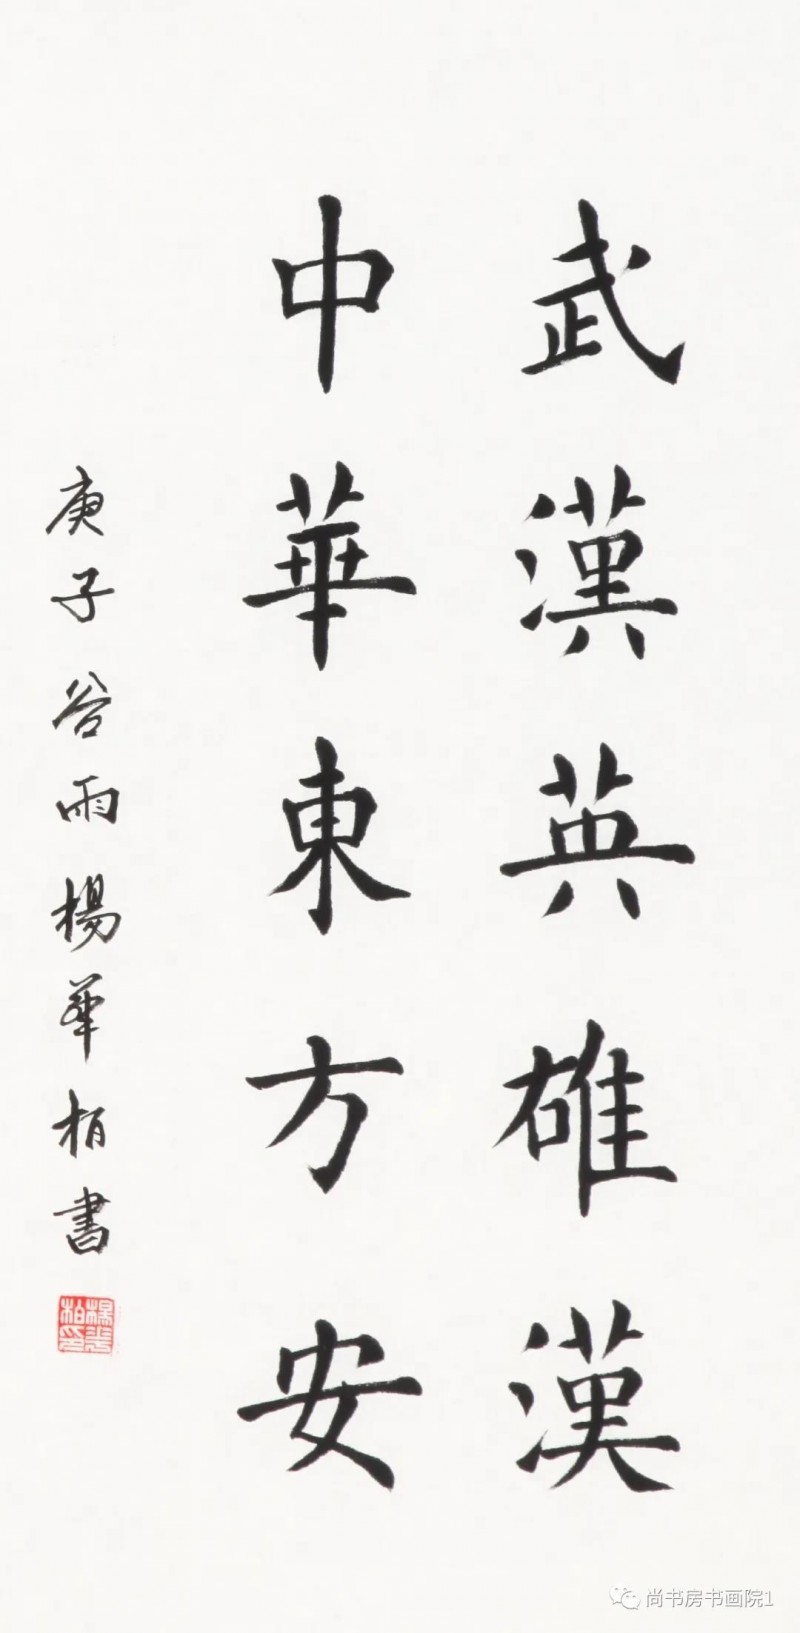 武漢英雄漢
中華東方安
庚子谷雨楊華柏書
楊華柏印
尚书房书画院1